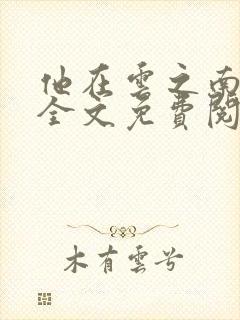 他在雲之南
全文免費閱
木有雲兮